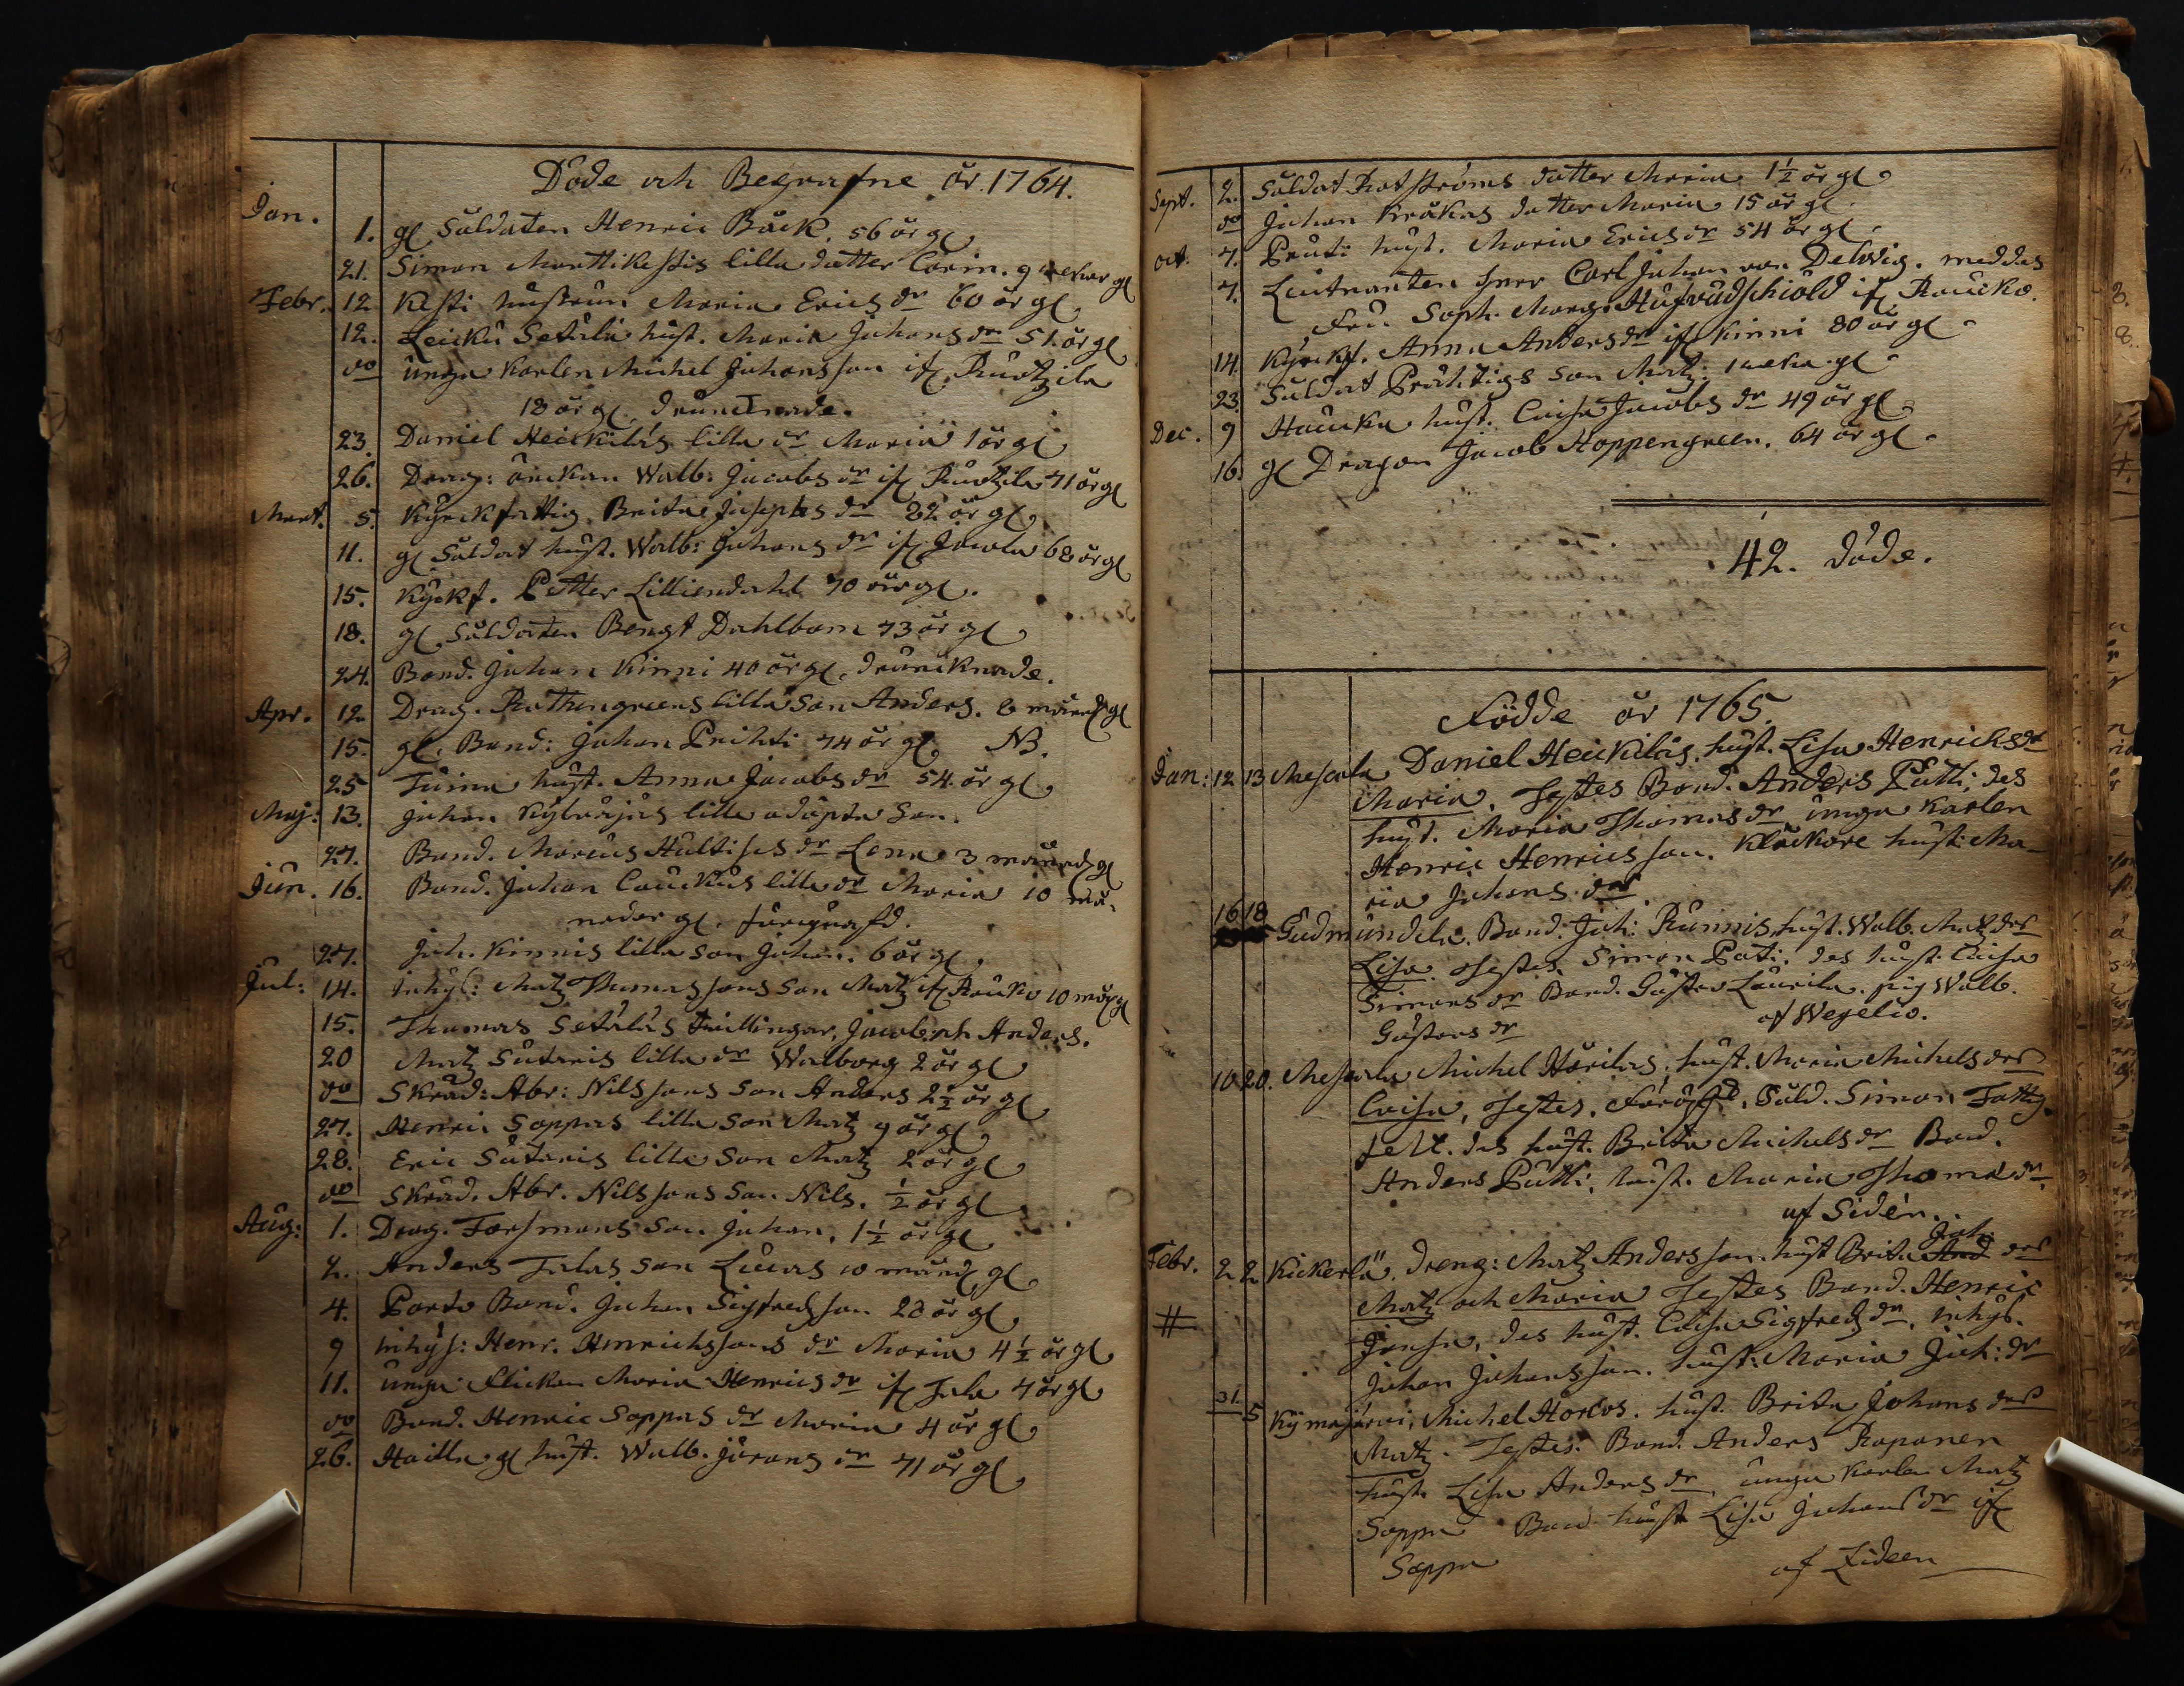 Döde och Begrafne år 1764.
Jan. 1. gl Soldaten Henric Bäck. 56 år gl
21. Simon Marttikessis lilla dotter Carin. 9 wekor gl
Febr. 12 Kesti hustrun Maria Erics dr 60 år gl
12. Leiku Setälä hust. Maria Johans dr 51. år gl
do unga karlen Michel Johansson if. Ruotzila
18 år gl drunknade.
23. Daniel Heickiläs lilla dr Maria 1 år gl
26. Drag: änckan Walb: Jacobs dr if Ruotzila 71 år gl
Mart. 5. Kyrckfattig Brita Josephs dr 82 år gl
11. gl Soldat hust. Walb: Johans dr if Jacola 68 år gl
15. Kyrkf. Petter Lilliendahl 70 år gl.
18. gl Soldaten Bengt Dahlbom 73 år gl
24. Bond. Johan Kinni 40 år gl. drunknade.
Apr. 12. Drag. Rothengreens lilla son Anders. 8 månad gl
15. gl. Bond: Johan Prihti 74 år gl NB.
25 Tuima hust. Anna Jacobs dr 54. år gl
Maj: 13. Johan Kylväjäs lilla odöpta Son.
27. Bond. Marcus Hultises dr Lena 3 månad gl
Jun. 16. Bond. Johan Cauckus lilla dr Maria 10 må-
nader gl.
27. Joh. Kinnis lilla son Johan. 6 år gl.
Jul: 14. Inhys: Matz Thomassons son Matz if Rauko 10 mån gl
15. Thomas Setäläs twillingar, Jacob och Anders.
20 Matz Sutaris lilla dr Walborg 2 år gl
do Skräd: Abr: Nilssons son Anders 2 1/2 år gl
27. Henric Soppas lilla son Matz 9 år gl
28. Eric Sutaris lilla Son Matz 2 år gl
do Skräd. Abr. Nilssons Son Nils. 1/2 år gl
Aug: 1. Drag. Forsmans son Johan. 1 1/2 år gl
2. Anders Talas son Lucas 10 månd gl
4. Porto Bond. Johan Sigfredsson 28 år gl
9 Inhys: Henr. Henrichssons dr Maria 4 1/2 år gl
11. unga flickan Maria Henrics dr if Tala 7 år gl
do Bond. Henric Soppas dr Maria 4 år gl
26. Hailla gl hust. Walb. Jörans dr 71 år gl
Sept. 2. Soldat Rotströms dotter Maria 1 1/2 år gl
do Johan Kråkas dotter Maria 15 år gl.
oct. 7. Pruti hust. Maria Erics dr 54 år gl.
7. Leutnanten Herr Carl Johan von Delwig. med des
Fru Soph. Marg. Hufvudschiöld if Rauko.
14. Kyrckf. Anna Anders dr if Kinni 80 år gl
23. Soldat Prähtigs Son Matz. 1 weka gl
Dec. 9 Haucka hust. Caisa Jacobs dr 49 år gl
16. gl Dragon Jacob Hoppengreen. 64 år gl
42. döde.
Födde år 1765.
Jan: 12 13 Mescala Daniel Heickiläs. hust. Lisa Henrichs dr
Maria. Testes Bond. Anders Putti, des
hust. Maria Thomas dr unga Karlen
Henric Henricsson. Klåckare hust: Ma-
ria Johans dr
16 18 Gudmundila. Bond. Joh: Runnis, hust. Walb. Matz dr
Lisa. Testes. Simon Pati. des hust. Caisa
Simons dr Bond. Gustav Laurila. pig Walb.
Gustavs dr af Wegelio.
10 20. Mescala Michel Hörilas. hust. Maria Michels dr
Caisa, Testes. Sold. Simon Fattig
felt. des hust. Britta Michels dr Bond.
Anders Putti, hust. Maria Thoma dr,
af Sidén.
Joh.
Febr. 2 2 Kickerlä. Dreng: Matz Andersson. hust Brita And dr
Matz och Maria Testes Bond. Henric
# des hust. Caisa Sigfreds dr. Inhys.
Johan Johansson. hust: Maria Joh: dr
31. 5 Kymajärvi, Michel Horlos. hust. Brita Johans dr
Matz. Testes. Bond. Anders Roponen
hust. Lisa Anders dr, unga karlen Matz
Soppa Bond hust Lisa Johans dr if
Soppa af Zideen